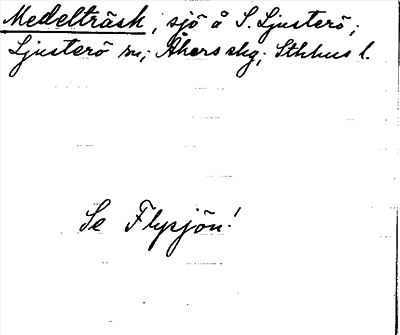 Medelträsk, sjö å S. Ljusterö;
Ljusterö sn; Åkers skg; Sthlms l.
Se Flysjön!